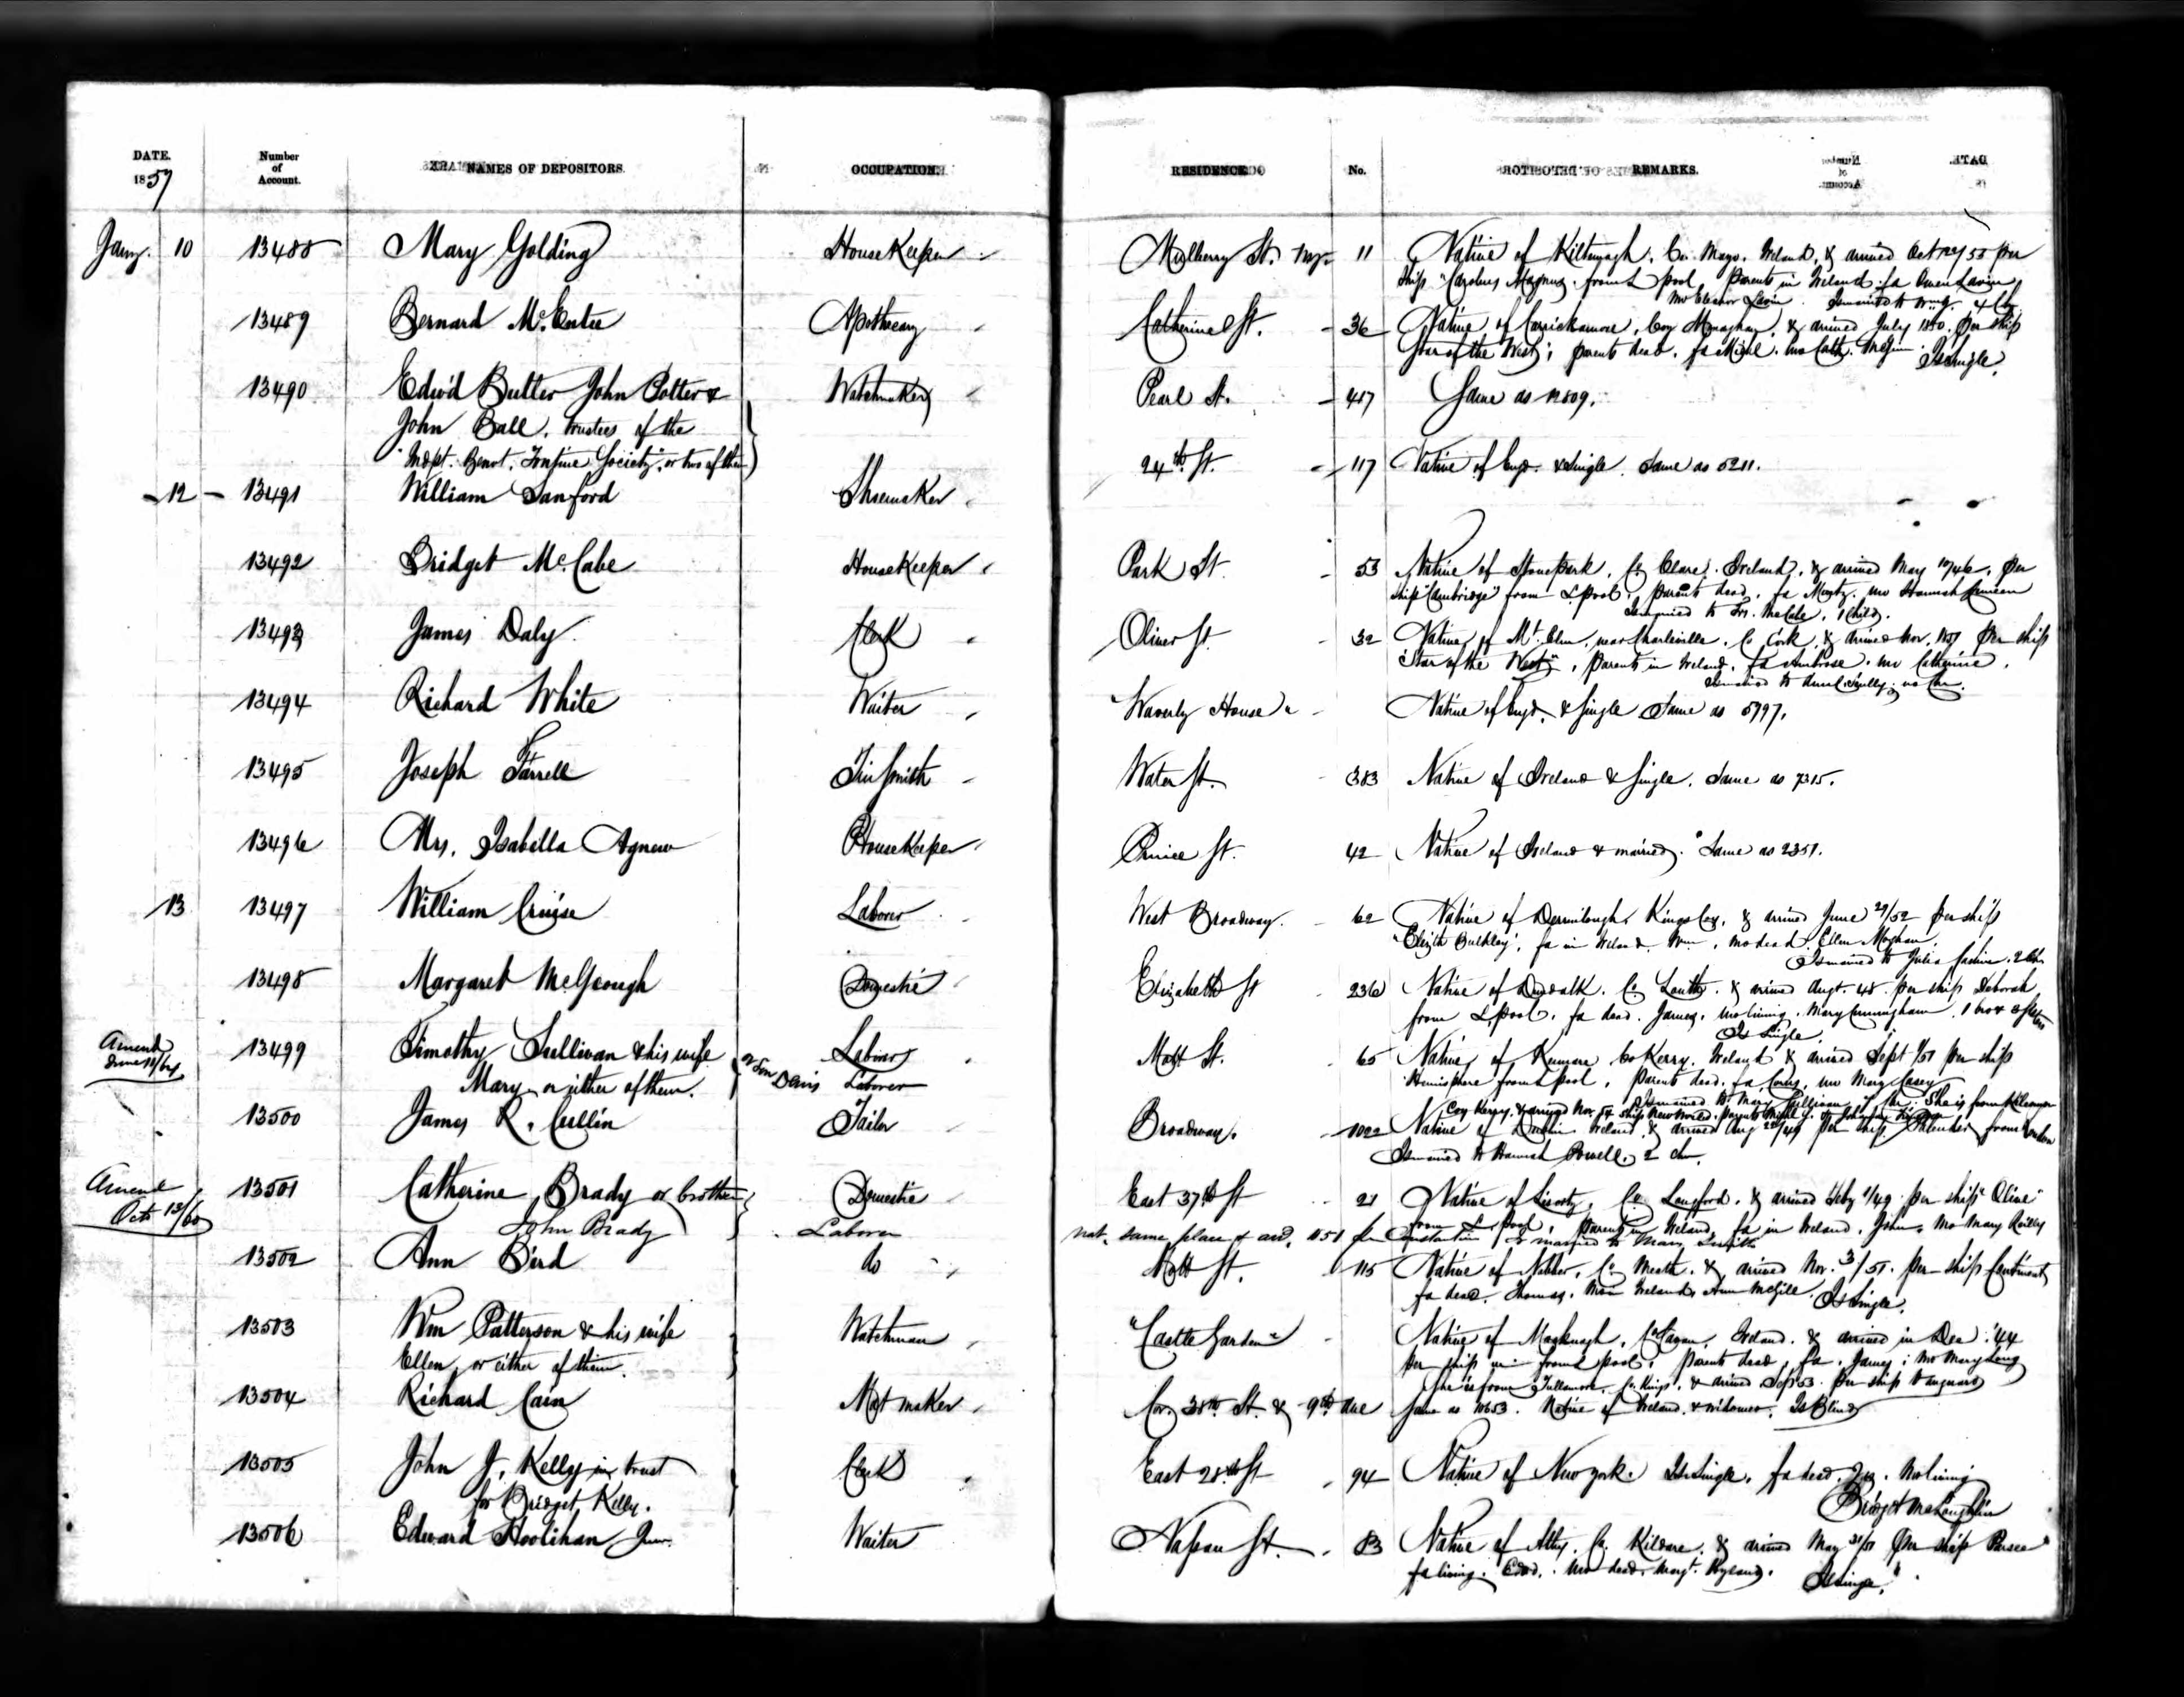 DATE. Number of Account. NAMES OF DEPOSITORS. OCCUPATION. RESIDENCE. No. REMARKS.
1857
Jany. 10 13488 Mary Golding HouseKeeper Mulberry St. 11 Native of Kiltimagh, Co. Mayo, Ireland, & arrived Oct 55 per
ship "Carolus Magnus" from L'pool Parents in Ireland. fa Owen Lavin
mo Eleanor Lavin Is married to 4 Ch
13489 Bernard McEntee Apothecary Catherine St. 36 Native of Carrickamore, Coy Monaghan, & arrived July 1850. per ship
Star of the West; parents dead. fa Michl. mo Cath. McGinn. Is single.
13490 Edwd Butler John Potter & Watchmaker Pearl St. 487 Same as 12809.
John Ball. trustees of the
"Indpt. Benvt. Tontine Society", or two of them
12 13491 William Sanford Shoemaker 24th St. 117 Native of Engd. & Single. Same as 5211.
13492 Bridget McCabe HouseKeeper Park St. 53 Native of Stonepark, Co Clare. Ireland, & arrived May 10/46, per
ship "Cambridge" from L'pool, parents dead. fa Mortz. mo Hannah
Is married to McCabe, 1 Child.
13493 James Daly Clerk Oliver St. 32 Native of Mt. near Charleville. Co Cork, & arrived Nov. per ship
"Star of the West", parents in Ireland. fa Ambrose. mo Catherine.
Is married to Scully. no Chn.
13494 Richard White Waiter "Waverly House" Native of Engd. & Single Same as 5997.
13495 Joseph Farrell Tin Smith Water St. 383 Native of Ireland & Single. Same as 7315.
13496 Mrs. Isabella Agnew HouseKeeper Prince St. 42 Native of Ireland & married. Same as 2351.
13 13497 William Cruise Laborer West Broadway. 62 Native of Kings Coy, & arrived June 29/52 per ship
"Elizth Bulkley", fa in Ireland. Wm, mo dead. Ellen Moghan.
Is married to Julia 2 Chn
13498 Margaret McGeough Domestic Elizabeth St 236 Native of Dundalk. Co Louth. & arrived Augt. 48. per ship Deborah
from L'pool, fa dead. James. mo living. Mary Cunningham. 1 bro & 3 sisters
Is Single.
Amend June 11/64 13499 Timothy Sullivan & his wife Laborer Mott St. 65 Native of Kenmare Co Kerry. Ireland & arrived Sept 1/51 per ship
Mary, or either of them. or Son Denis Laborer Hemisphere from L'pool, Parents dead. fa mo Mary Casey
Is married to Mary Sullivan She is from
Coy Kerry, & arrived Nov. 54 ship New World.
13500 James R. Cullin Tailor Broadway. 1022 Native of Dublin Ireland & arrived Aug 22/49 per ship from London
Is married to Hannah Powell. 2 chn.
Amend Oct 13/60 13501 Catherine Brady or brother Domestic East 37th St 21 Native of Co Longford. & arrived Feby 1/49 per ship "Olive"
from L'pool, parents in Ireland, fa in Ireland. John. mo Mary Reilly
John Brady Laborer nat. same place & arrd. 1851 per Constantine Is married to Mary Smith
13502 Ann Bird do Mott St. 115 Native of Nobber, Co Meath. & arrived Nov. 3/51. per ship Continent
fa dead. Thomas. Mo in Ireland. Ann McGill. Is Single.
13503 Wm Patterson & his wife Watchman "Castle Garden" Native of Co Cavan, Ireland. & arrived in Dec. '44
Ellen, or either of them. per ship from L'pool, parents dead, fa. James; mo Mary Long
She is from Tullamore, Co Kings, & arrived Sep 53. per ship Vanguard
13504 Richard Cain Mat maker Cor. 38th St. & 9th Ave Same as 10653. Native of Ireland & widower. Is Blind
13505 John J. Kelly in trust Clerk East 28th St 94 Native of New York. Is Single. fa dead. Jno. Mo living
for Bridget Kelly. Bridget McLaughlin
13506 Edward Hoolihan Junr. Waiter Nassau St. 83 Native of Athy. Co. Kildare. & arrived May 31/51 per ship Parsee
fa living. Edwd. Mo dead. Margt. Hyland. Is Single.